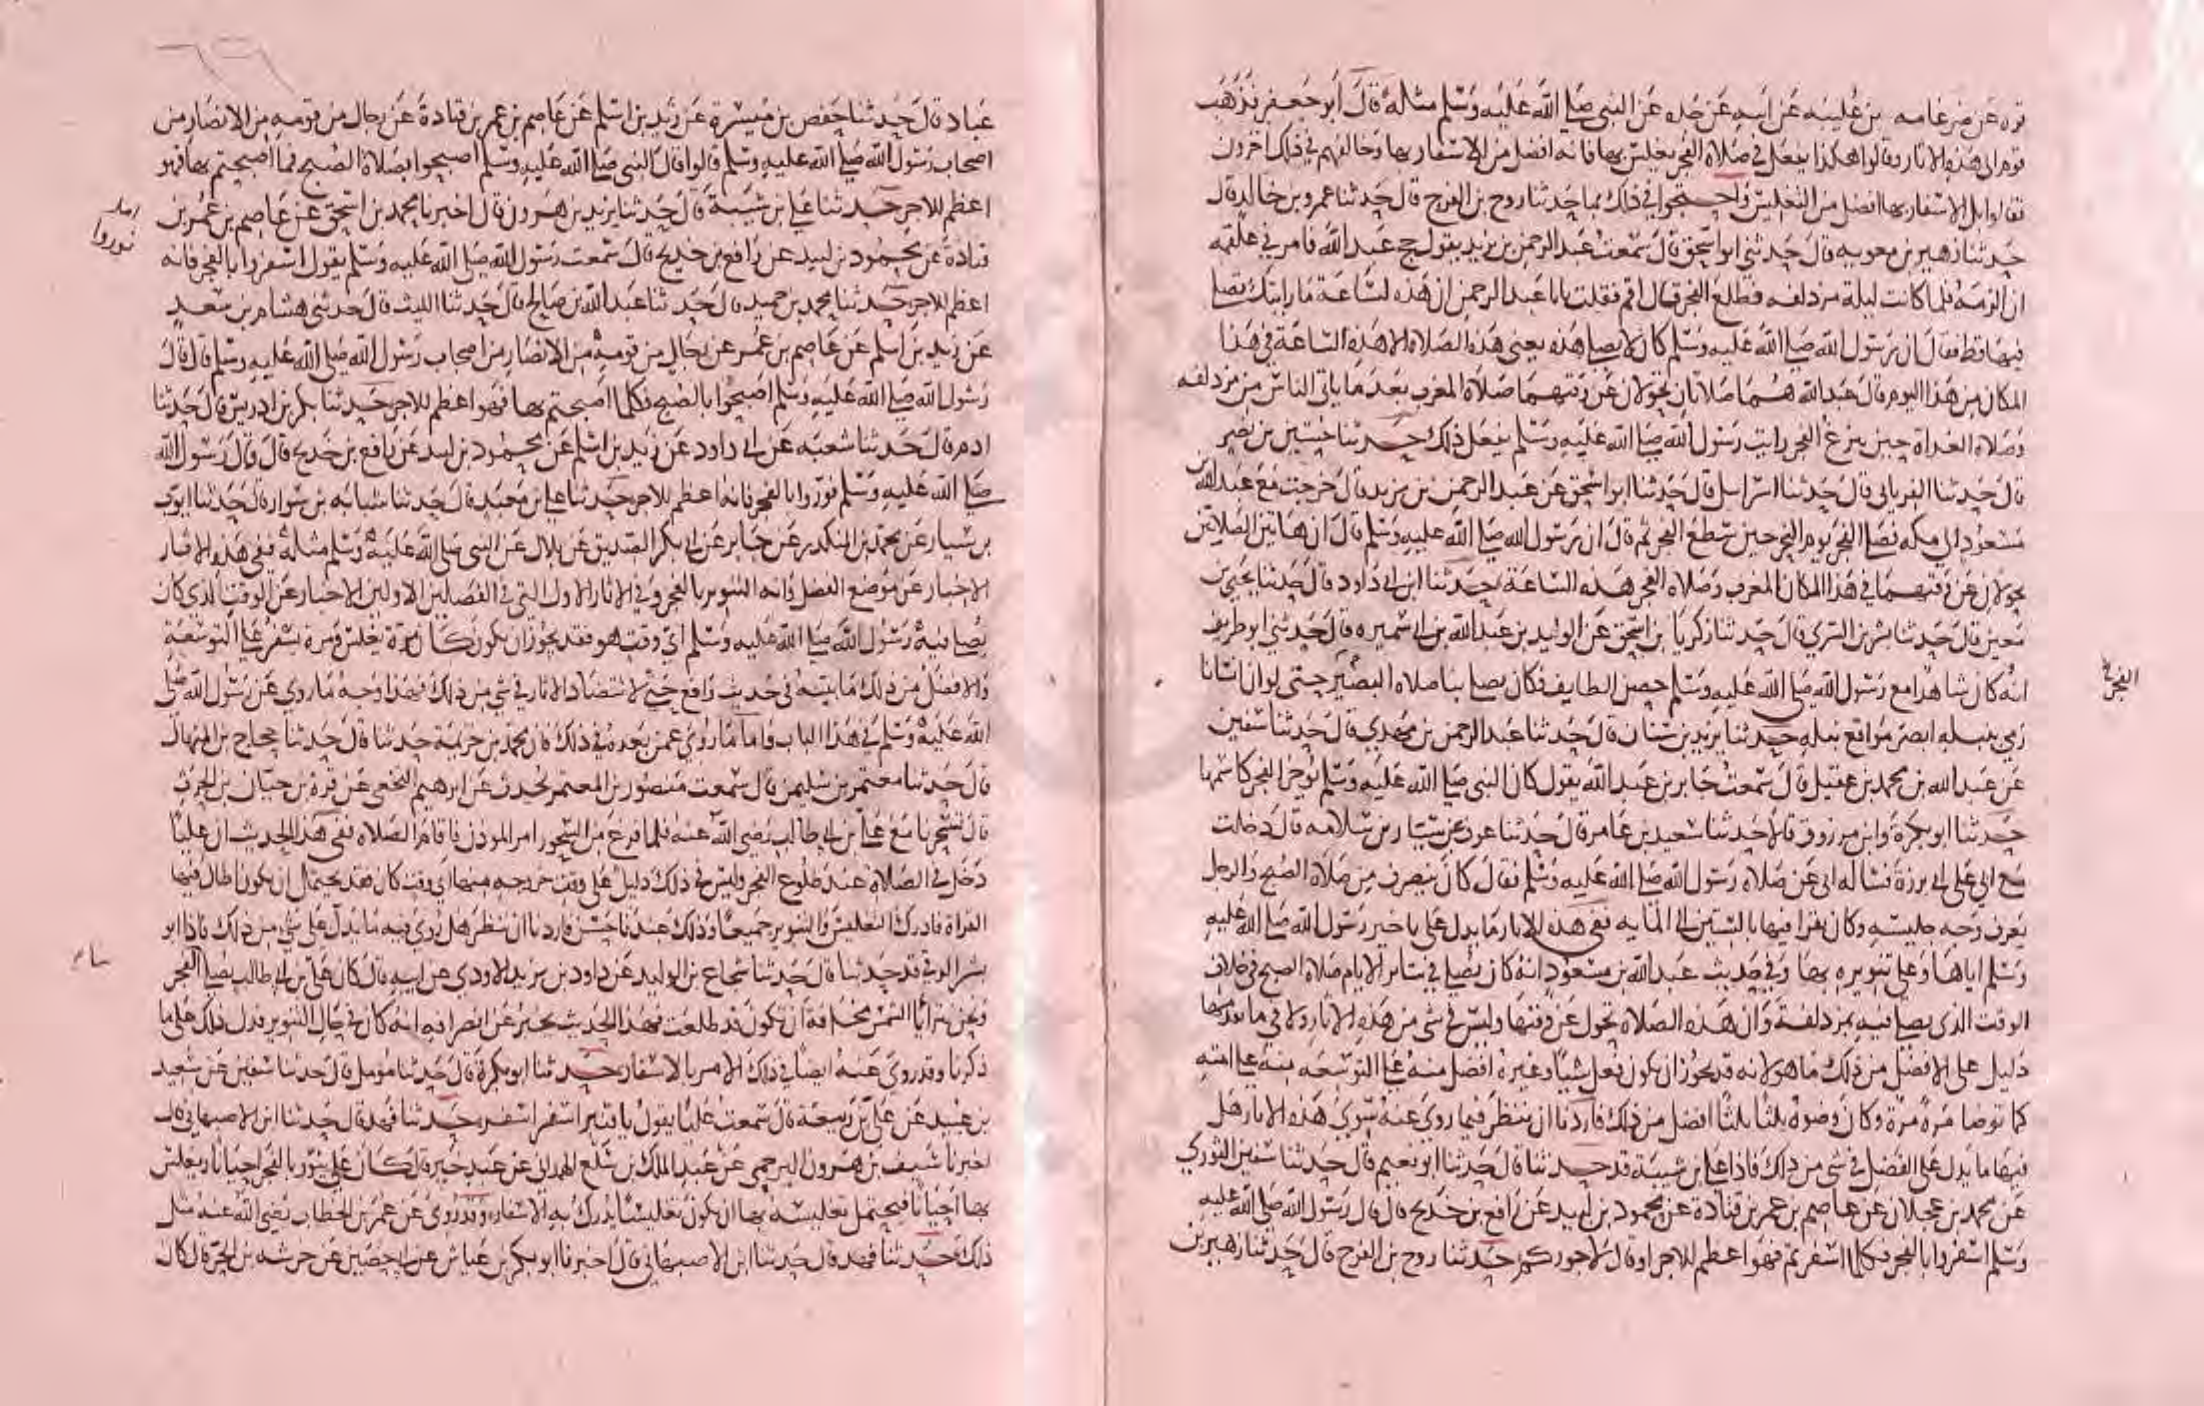 قرة عن ضرغامه بن عليبه عن ابيه عن جده عن النبي صلى الله عليه وسلم مثله قال ابو جعفر فذهب
قوم الى هذه الاثار وقالوا هكذا يفعل في صلاة الفجر يغلس بها فانه افضل من الاسفار بها وخالفهم في ذلك اخرون
فقالوا بل الاسفار بها افضل من التغليس واحتجوا في ذلك بما حدثنا روح بن الفرج قال حدثنا عمرو بن خالد قال
حدثنا زهير بن معويه قال حدثني ابو اسحق قال سمعت عبد الرحمن بن يزيد يقول حج عبد الله فامرني علقمه
ان الزمه فلما كانت ليلة مزدلفه وطلع الفجر قال اقم فقلت يا با عبد الرحمن ان هذه لساعة ما رايتك تصلي
فيها قط فقال ان رسول الله صلى الله عليه وسلم كان لا يصلي هذه يعني هذه الصلاة الا هذه الساعة في هذا
المكان من هذا اليوم قال عبد الله هما صلاتان تحولان عن وقتهما صلاة المغرب بعد ما ياتي الناس من مزدلفه
وصلاة الغداة حين يبزغ الفجر رايت رسول الله صلى الله عليه وسلم يفعل ذلك حدثنا حسين بن نصر
قال حدثنا الفريابي قال حدثنا اسرايل قال حدثنا ابو اسحق عن عبد الرحمن بن يزيد قال خرجت مع عبد الله بن
مسعود الى مكه فصلى الفجر يوم النحر حين سطع الفجر ثم قال ان رسول الله صلى الله عليه وسلم قال ان هاتين الصلاتين
تحولان عن وقتهما في هذا المكان المغرب وصلاة الفجر هذه الساعة حدثنا ابن ابي داود قال حدثنا يحيى بن
معين قال حدثنا بشر بن السري قال حدثنا زكريا بن اسحق عن الوليد بن عبد الله بن ابي سميره قال حدثني ابو طريف
انه كان شاهدا مع رسول الله صلى الله عليه وسلم حصن الطايف فكان يصلي بنا صلاة البصير حتى لو ان انسانا
رمى بنبله ابصر مواقع نبله حدثنا يزيد بن سنان قال حدثنا عبد الرحمن بن مهدي قال حدثنا سفين
عن عبد الله بن محمد بن عقيل قال سمعت جابر بن عبد الله يقول كان النبي صلى الله عليه وسلم يوخر الفجر كاسمها
حدثنا ابو بكرة وابن مرزوق قالا حدثنا سعيد بن عامر قال حدثنا عوف عن سيار بن سلامه قال دخلت
مع ابي على ابي برزة فساله ابي عن صلاة رسول الله صلى الله عليه وسلم فقال كان ينصرف من صلاة الصبح والرجل
يعرف وجه جليسه وكان يقرا فيها بالستين الى المايه ففي هذه الاثار ما يدل على تاخير رسول الله صلى الله عليه
وسلم اياها وعلى تنويره بها وفي حديث عبد الله بن مسعود انه كان يصلي في سائر الايام صلاة الصبح في خلاف
الوقت الذي يصلي فيه بمزدلفة وان هذه الصلاة تحول عن وقتها وليس في شي من هذه الاثار ولا في ما تقدمها
دليل على الافضل من ذلك ما هو لانه قد يجوز ان يكون فعل شيا وغيره افضل منه على التوسعه منه على امته
كما توضا مرة مرة وكان وضوه ثلثا ثلثا افضل من ذلك فاردنا ان ننظر فيما روي عنه سوى هذه الاثار هل
فيها ما يدل على الفضل في شي من ذلك فاذا علي بن شيبة قد حدثنا قال حدثنا ابو نعيم قال حدثنا سفين الثوري
عن محمد بن عجلان عن عاصم بن عمر بن قتادة عن محمود بن لبيد عن رافع بن خديج قال قال رسول الله صلى الله عليه
وسلم اسفروا بالفجر فكلما اسفرتم فهو اعظم للاجر او قال لاجوركم حدثنا روح بن الفرج قال حدثنا زهير بن
عباد قال حدثنا حفص بن ميسرة عن زيد بن اسلم عن عاصم بن عمر بن قتادة عن رجال من قومه من الانصار من
اصحاب رسول الله صلى الله عليه وسلم قالوا قال النبي صلى الله عليه وسلم اصبحوا بصلاة الصبح فما اصبحتم بها فهو
اعظم للاجر حدثنا علي بن شيبة قال حدثنا يزيد بن هرون قال اخبرنا محمد بن اسحق عن عاصم بن عمر بن
قتادة عن محمود بن لبيد عن رافع بن خديج قال سمعت رسول الله صلى الله عليه وسلم يقول اسفروا بالفجر فانه
نوروا
اعظم للاجر حدثنا محمد بن حميد قال حدثنا عبد الله بن صالح قال حدثنا الليث قال حدثني هشام بن سعد
عن زيد بن اسلم عن عاصم بن عمر عن رجال من قومه من الانصار من اصحاب رسول الله صلى الله عليه وسلم قال قال
رسول الله صلى الله عليه وسلم اصبحوا بالصبح فكلما اصبحتم بها فهو اعظم للاجر حدثنا بكر بن ادريس قال حدثنا
ادم قال حدثنا شعبه عن ابي داود عن زيد بن اسلم عن محمود بن لبيد عن رافع بن خديج قال قال رسول الله
صلى الله عليه وسلم نوروا بالفجر فانه اعظم للاجر حدثنا علي بن معبد قال حدثنا شبابه بن سوار قال حدثنا ايوب
بن سيار عن محمد بن المنكدر عن جابر عن ابي بكر الصديق عن بلال عن النبي صلى الله عليه وسلم مثله ففي هذه الاثار
الاخبار عن موضع الفضل وانه التنوير بالفجر وفي الاثار الاول التي في الفصلين الاولين الاخبار عن الوقت الذي كان
يصلي فيه رسول الله صلى الله عليه وسلم اي وقت هو فقد يجوز ان يكون كان مرة يغلس ومرة يسفر على التوسعة
والافضل من ذلك ما بينه في حديث رافع حتى لا تتضاد الاثار في شي من ذلك فهذا وجه ما روي عن رسول الله صلى
الله عليه وسلم في هذا الباب واما ما روي عمن بعده في ذلك فان محمد بن خزيمة حدثنا قال حدثنا حجاج بن المنهال
قال حدثنا معتمر بن سليمن قال سمعت منصور بن المعتمر يحدث عن ابرهيم النخعي عن قرة بن حيان بن الحرث
قال تسحرنا مع علي بن ابي طالب رضي الله عنه فلما فرغ من السحور امر الموذن فاقام الصلاة ففي هذا الحديث ان عليا
دخل في الصلاة عند طلوع الفجر وليس في ذلك دليل على وقت خروجه منها اي وقت كان فقد يحتمل ان يكون اطال فيها
القراة فادرك التغليس والتنوير جميعا وذلك عندنا حسن فاردنا ان ننظر هل روي عنه ما يدل على شي من ذلك فاذا ابو
بشر الرقي قد حدثنا قال حدثنا شجاع بن الوليد عن داود بن يزيد الاودي عن ابيه قال كان علي بن ابي طالب يصلي الفجر
ونحن نترايا الشمس مخافة ان تكون قد طلعت فهذا الحديث يخبر عن انصرافه انه كان في حال التنوير فدل ذلك على ما
ذكرنا وقد روي عنه ايضا في ذلك الامر بالاسفار حدثنا ابو بكرة قال حدثنا مومل قال حدثنا سفين عن سعيد
بن عبيد عن علي بن ربيعة قال سمعت عليا يقول يا قنبر اسفر اسفر حدثنا فهد قال حدثنا ابن الاصبهاني قال
اخبرنا سيف بن هرون البرجمي عن عبد الملك بن سلع الهمداني عن عبد خير قال كان علي ينور بالفجر احيانا ويغلس
بها احيانا فيحتمل تغليسه بها ان يكون تغليسا يدرك به الاسفار وقد روي عن عمر بن الخطاب رضي الله عنه مثل
ذلك حدثنا فهد قال حدثنا ابن الاصبهاني قال اخبرنا ابو بكر بن عياش عن ابي حصين عن خرشه بن الحر قال كان